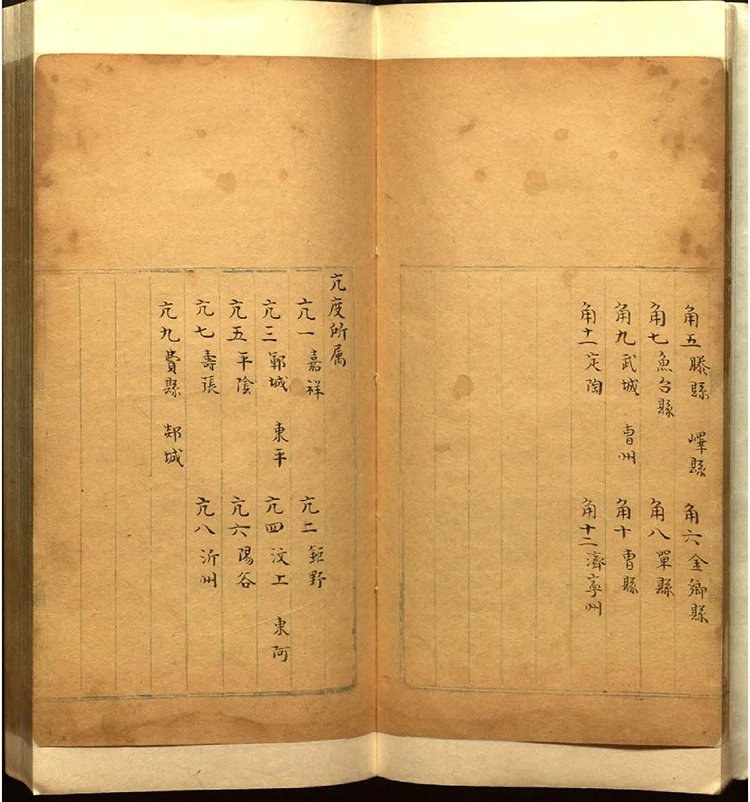 角五滕縣 嶧縣 角六金鄉縣
角七魚台縣 角八單縣
角九武城 曹州 角十曹縣
角十一定陶 角十二濟寧州
亢度所属
亢一嘉祥 亢二鉅野
亢三鄆城 東平 亢四汶上 東阿
亢五平陰 亢六陽谷
亢七壽張 亢八沂州
亢九費縣 郯城